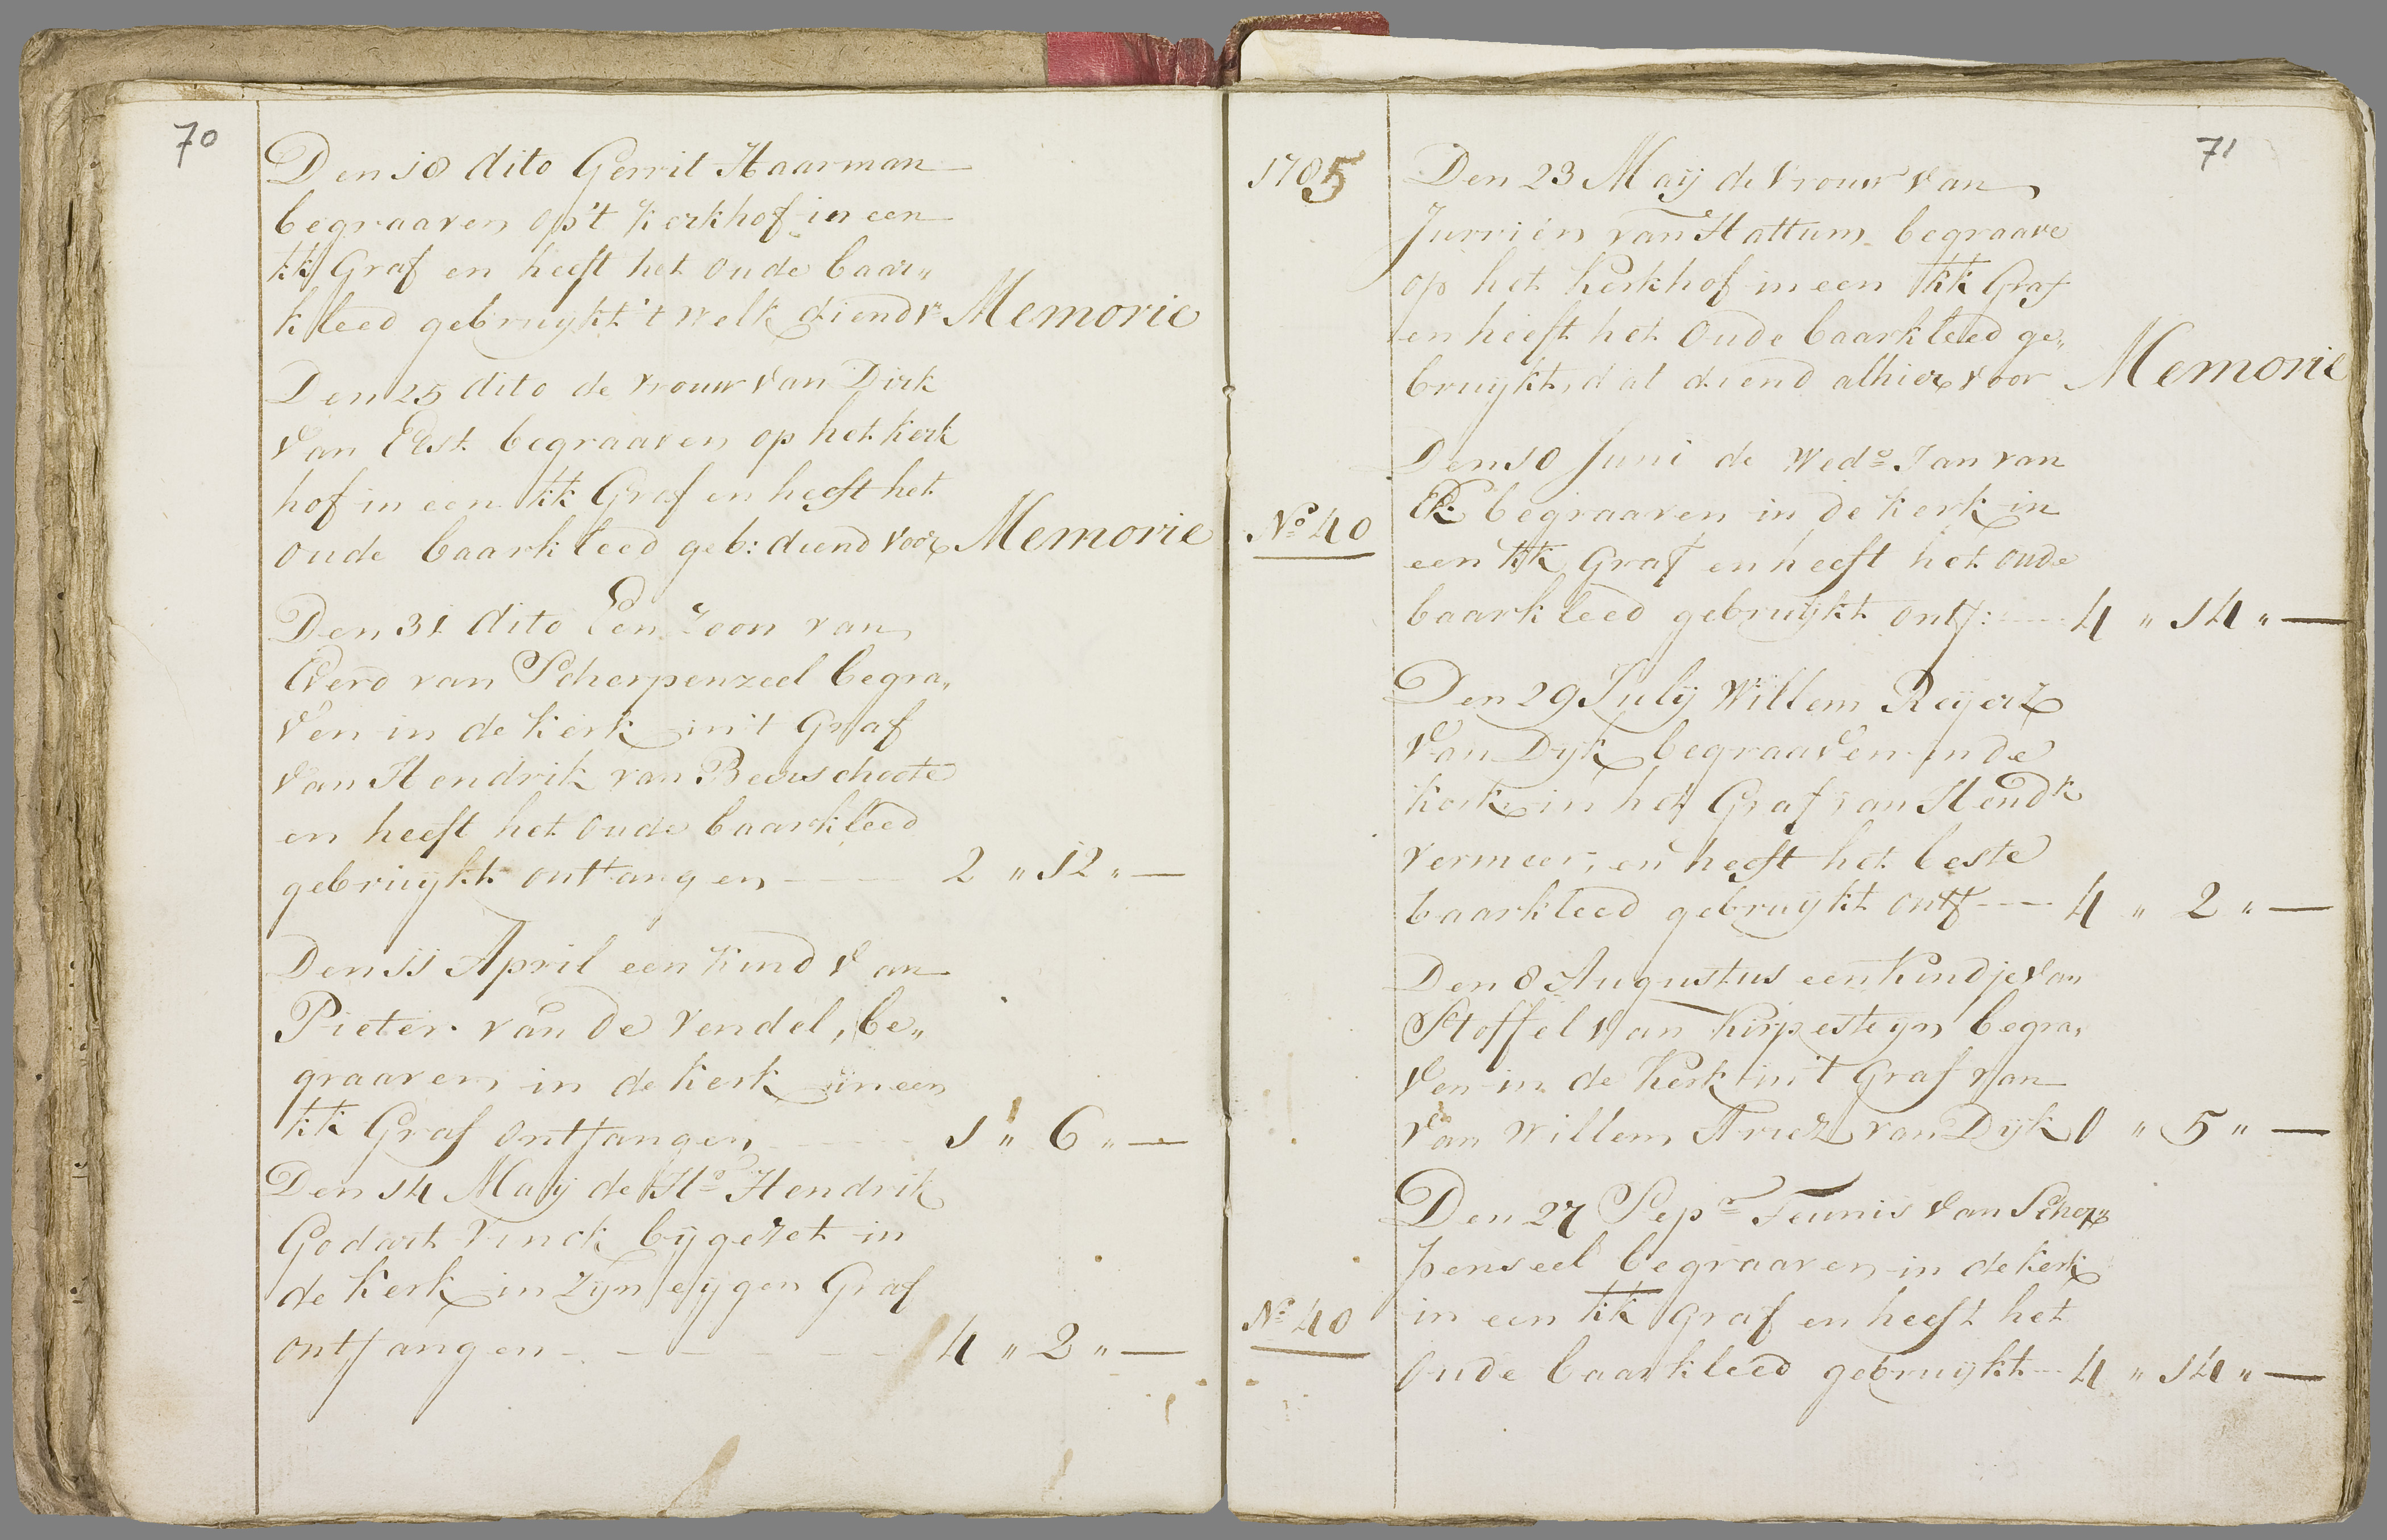 70
Den 18 dito Gerrit Haarman
begraaven op't kerkhof in een
kk Graf en heeft het oude baar„
kleed gebruijkt 't welk diend vr Memorie
Den 25 dito de vrouw van Dirk
van Elst begraaven op het kerk
hof in een kk Graf en heeft het
oude baarkleed geb: diend voor Memorie
Den 31 dito Een Zoon van
Everd van Scherpenzeel begra„
ven in de kerk in't Graf
van Hendrik van Beuschoote
en heeft het oude baarkleed
gebruijkt ontfangen 2 „ 12 „ —
Den 11 April een kind van
Pieter van de Vendel, be„
graaven in de kerk in een
kk Graf ontfangen 1 „ 6 „ —
Den 14 Maij de Hr Hendrik
Godart Vinck bijgezet in
de kerk in zijn eijgen Graf
ontfangen 4 „ 2 „ —
71
1785
Den 23 Maij de vrouw van
Jurriën van Hattum begraave
op het kerkhof in een kk Graf
en heeft het oude baarkleed ge„
bruijkt, dat diend alhier voor Memorie
Den 10 Juni de Wede Jan van
Ek begraaven in de kerk in
No 40
een kk Graf en heeft het oude
baarkleed gebruijkt ontf: 4 „ 14 „ —
Den 29 Julij Willem Reijerz
van Dijk begraaven in de
kerk in het Graf van Hendk
vermeer, en heeft het beste
baarkleed gebruijkt ontf 4 „ 2 „ —
Den 8 Augustus een Kindje van
Stoffel van Kirpesteijn begra„
ven in de kerk in't Graf van
van Willem Ariez van Dijk 0 „ 5 „ —
Den 27 Sepr Teunis van Scher„
penseel begraaven in de kerk
No 40
in een kk Graf en heeft het
oude baarkleed gebruijkt 4 „ 14 „ —